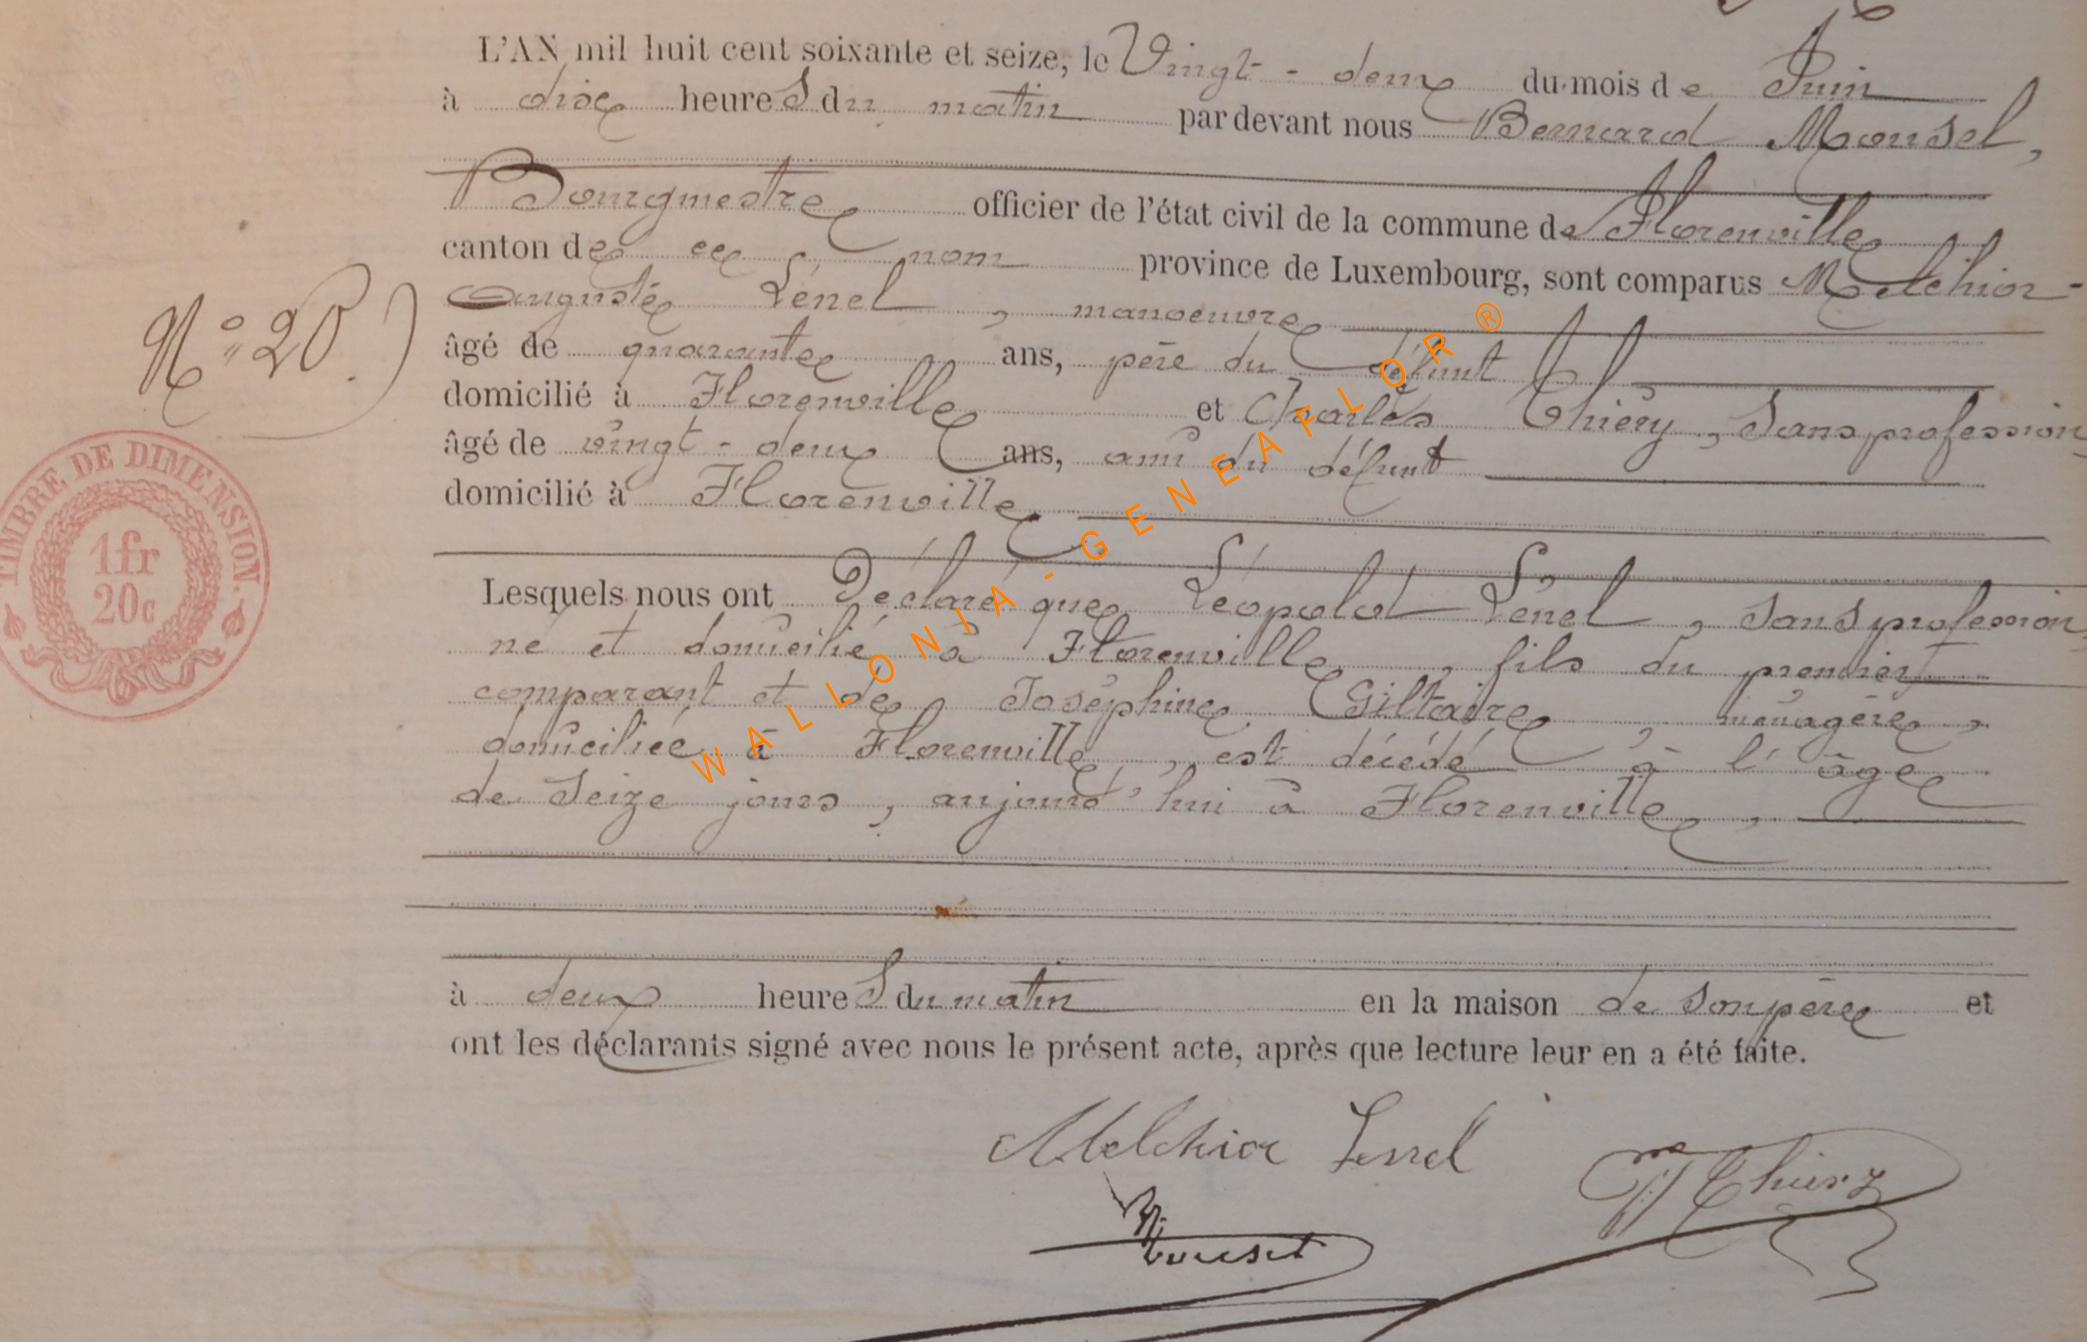 L'AN mil huit cent soixante et seize, le Vingt-deux du mois de Juin
à dix heures du matin par devant nous Bernard Mousel,
Bourgmestre officier de l'état civil de la commune de Florenville
canton de ce nom province de Luxembourg, sont comparus Melchior-
Auguste Lénel, manoeuvre
âgé de quarante ans, père du défunt
domicilié à Florenville et Charles Thiéry, sans profession,
âgé de vingt-deux ans, ami du défunt
domicilié à Florenville
N° 20.)
TIMBRE DE DIMENSION.
1fr
20c
Lesquels nous ont Déclaré que Léopold Lénel, sans profession,
né et domicilié à Florenville, fils du premier
comparant et de Joséphine Giltaire, ménagère,
domiciliée à Florenville, est décédé à l'âge
de seize jours, aujourd'hui à Florenville,
à deux heures du matin en la maison de son père et
ont les déclarants signé avec nous le présent acte, après que lecture leur en a été faite.
Melchior Lenel
Thiery
Mousel
WALLONIA-GENEAFLOR®